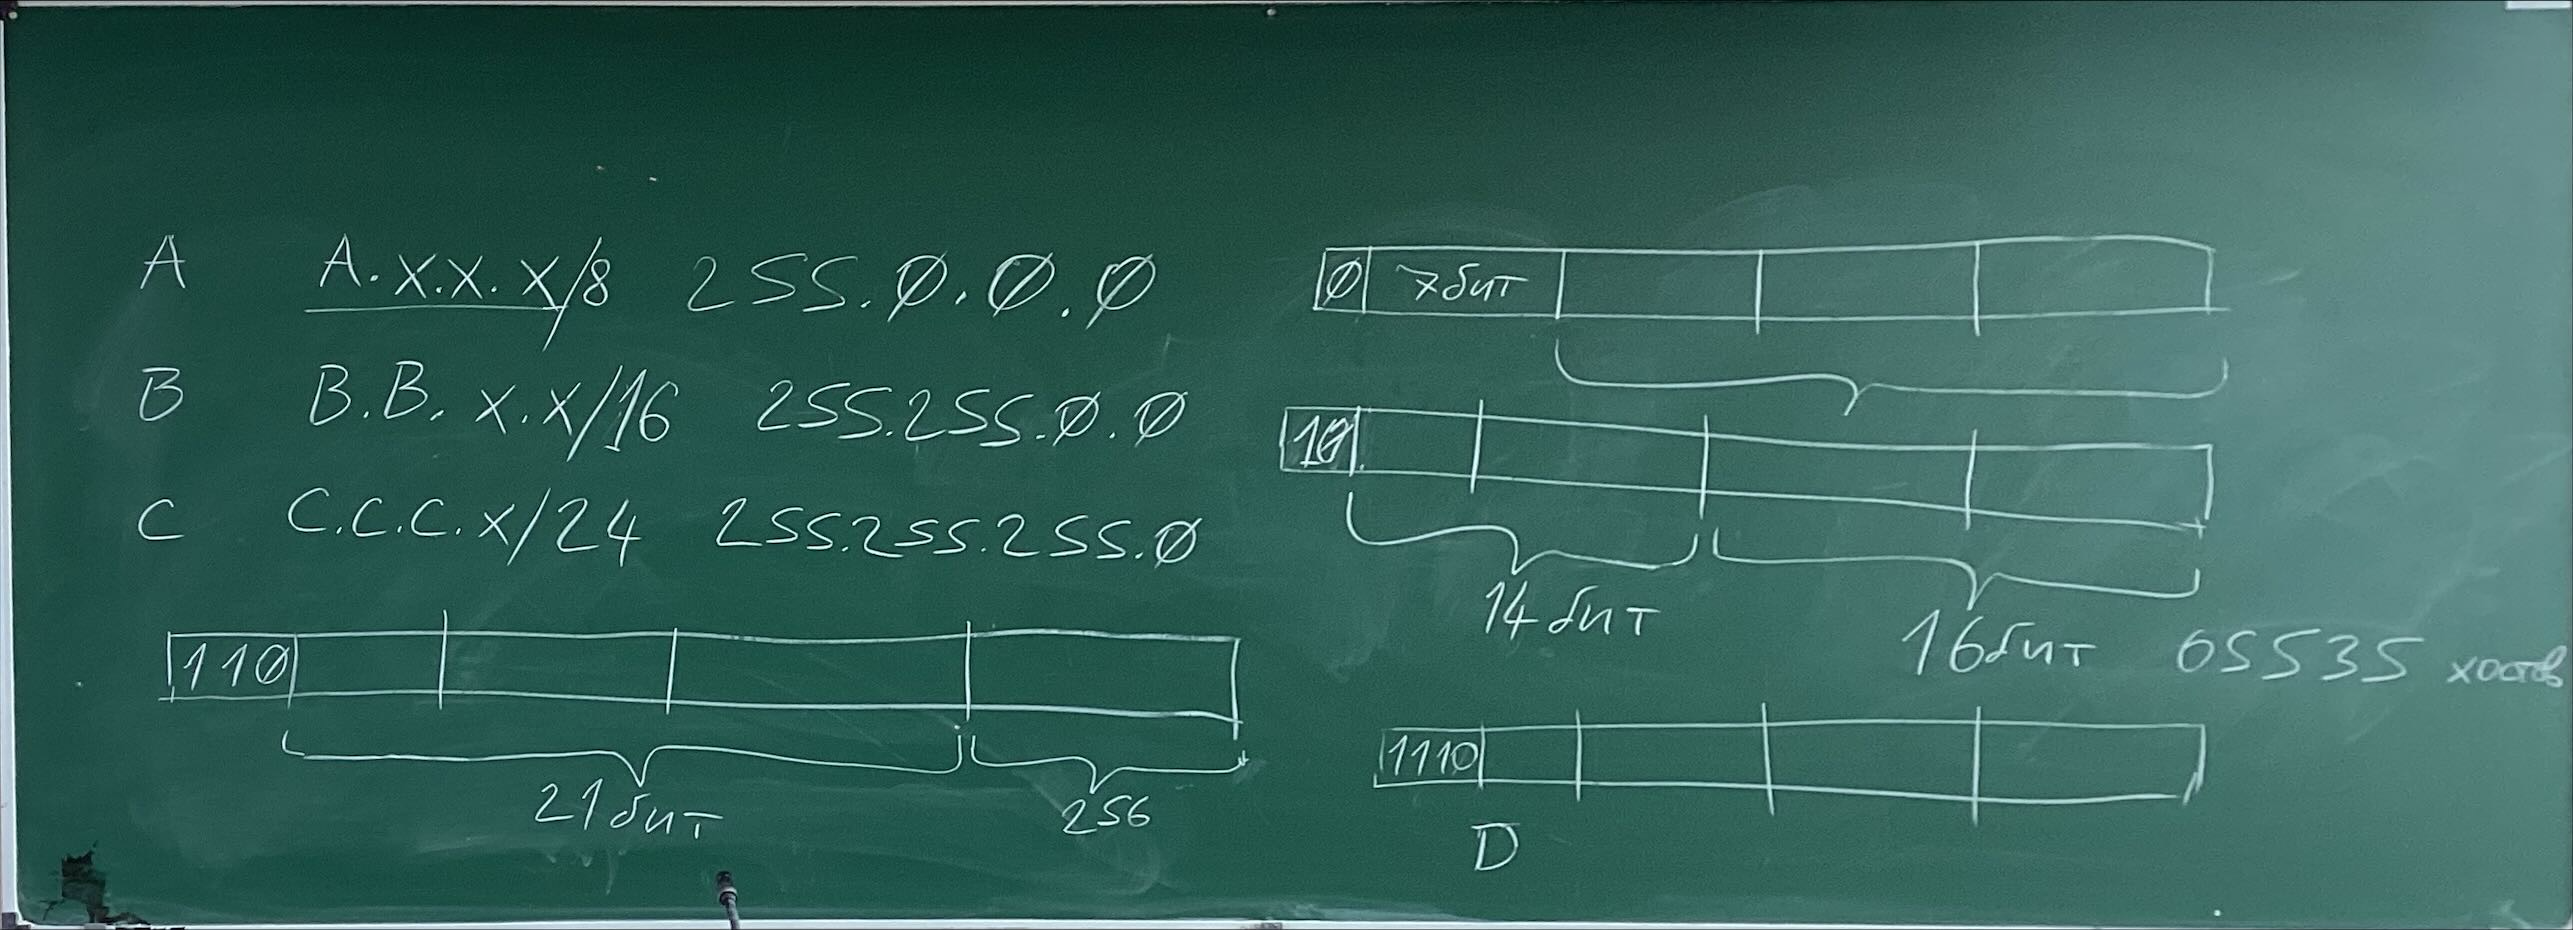 A A.x.x.x/8 255.0.0.0
B B.B.x.x/16 255.255.0.0
C C.C.C.x/24 255.255.255.0
110
21 бит 256
0 7 бит
10
14 бит 16 бит 65535 хостов
1110
D